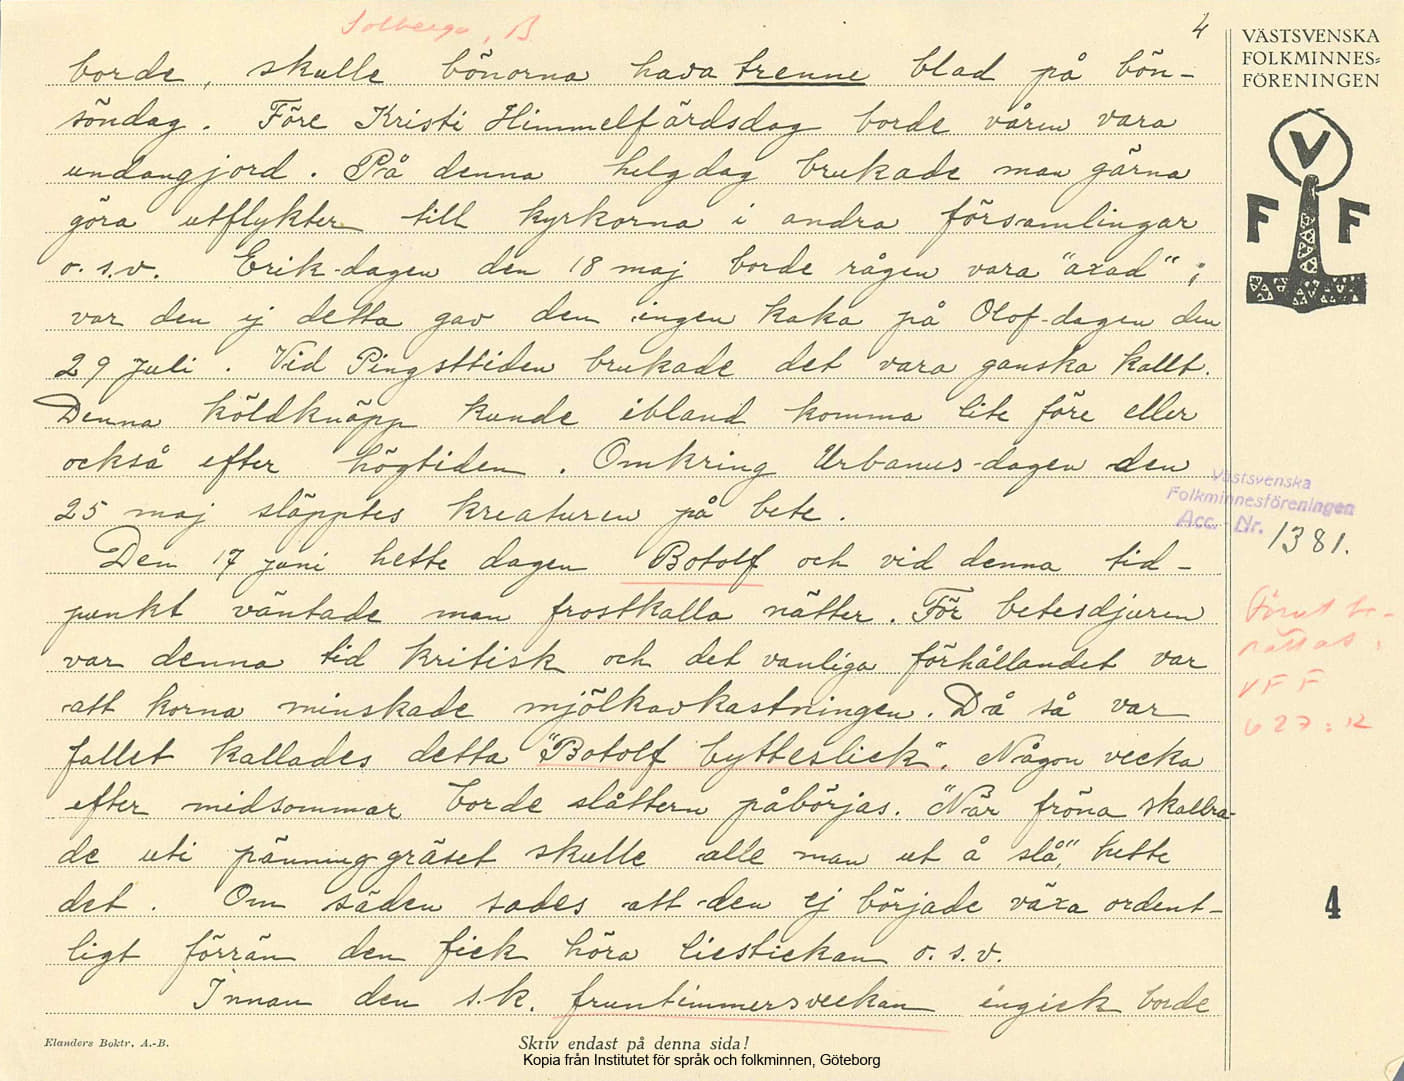 Solberga, B
4
borde, skulle bönorna hava trenne blad på bön-
söndag. Före Kristi Himmelfärdsdag borde våren vara
undangjord. På denna helgdag brukade man gärna
göra utflykter till kyrkorna i andra församlingar
o.s.v. Erik-dagen den 18 maj borde rågen vara "axad";
var den ej detta gav den ingen kaka på Olof-dagen den
29 juli. Vid Pingsttiden brukade det vara ganska kallt.
Denna köldknäpp kunde ibland komma lite före eller
också efter högtiden. Omkring Urbanus-dagen den
25 maj släpptes kreaturen på bete.
Den 17 juni hette dagen Botolf och vid denna tid-
punkt väntade man frostkalla nätter. För betesdjuren
var denna tid kritisk och det vanliga förhållandet var
att korna minskade mjölkavkastningen. Då så var
fallet kallades detta "Botolf bytteslick". Någon vecka
efter midsommar borde slåttern påbörjas. "När fröna skallra-
de uti pänninggräset skulle alle man ut å slå", hette
det. Om säden sades att den ej började växa ordent-
ligt förrän den fick höra liestickan o.s.v.
Innan den s.k. fruntimmersveckan ingick borde
VÄSTSVENSKA
FOLKMINNES=
FÖRENINGEN
V
F F
Västsvenska
Folkminnesföreningen
Acc. Nr. 1381.
Förut be-
rättat:
VFF
627:12
4
Elanders Boktr. A.-B.
Skriv endast på denna sida!
Kopia från Institutet för språk och folkminnen, Göteborg